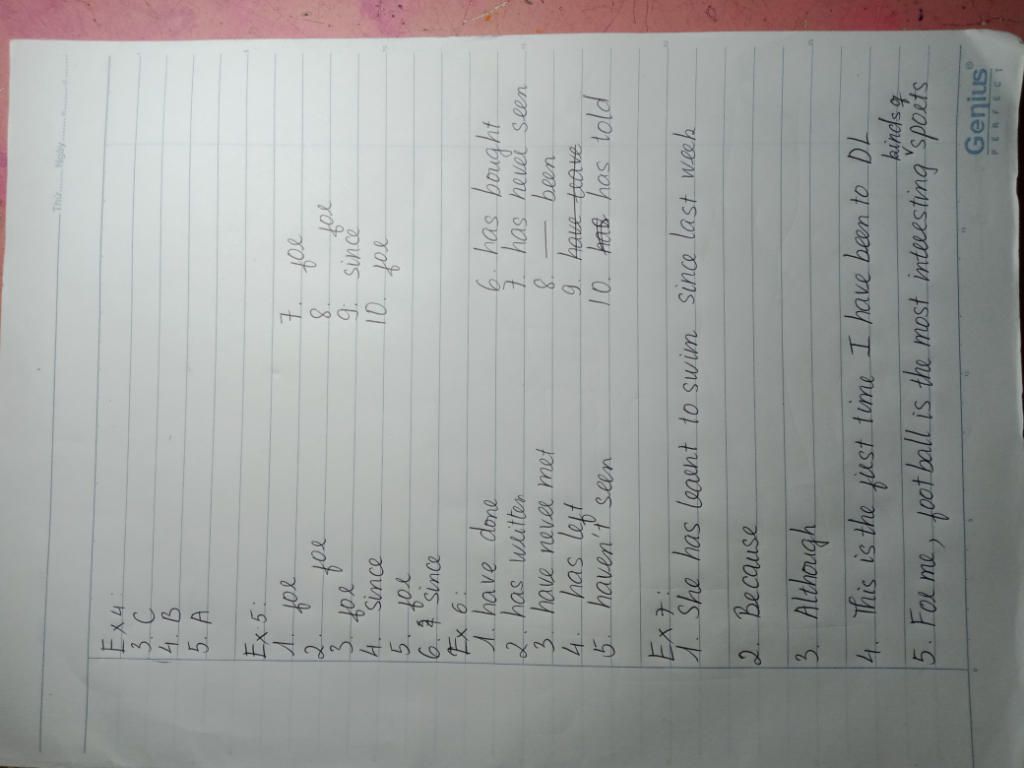 Thứ........ Ngày....................
Ex 4:
3. C
4. B
5. A
Ex 5:
1. for 7. for
2. for 8. for
3. for 9. since
4. since 10. for
5. for
6. since
Ex 6:
1. have done 6. has bought
2. has written 7. has never seen
3. have never met 8. — been
4. has left 9.
5. haven't seen 10. has told
Ex 7:
1. She has learnt to swim since last week
2. Because
3. Although
4. This is the first time I have been to DL
5. For me, football is the most interesting kinds of sports
Genius®
PERFECT